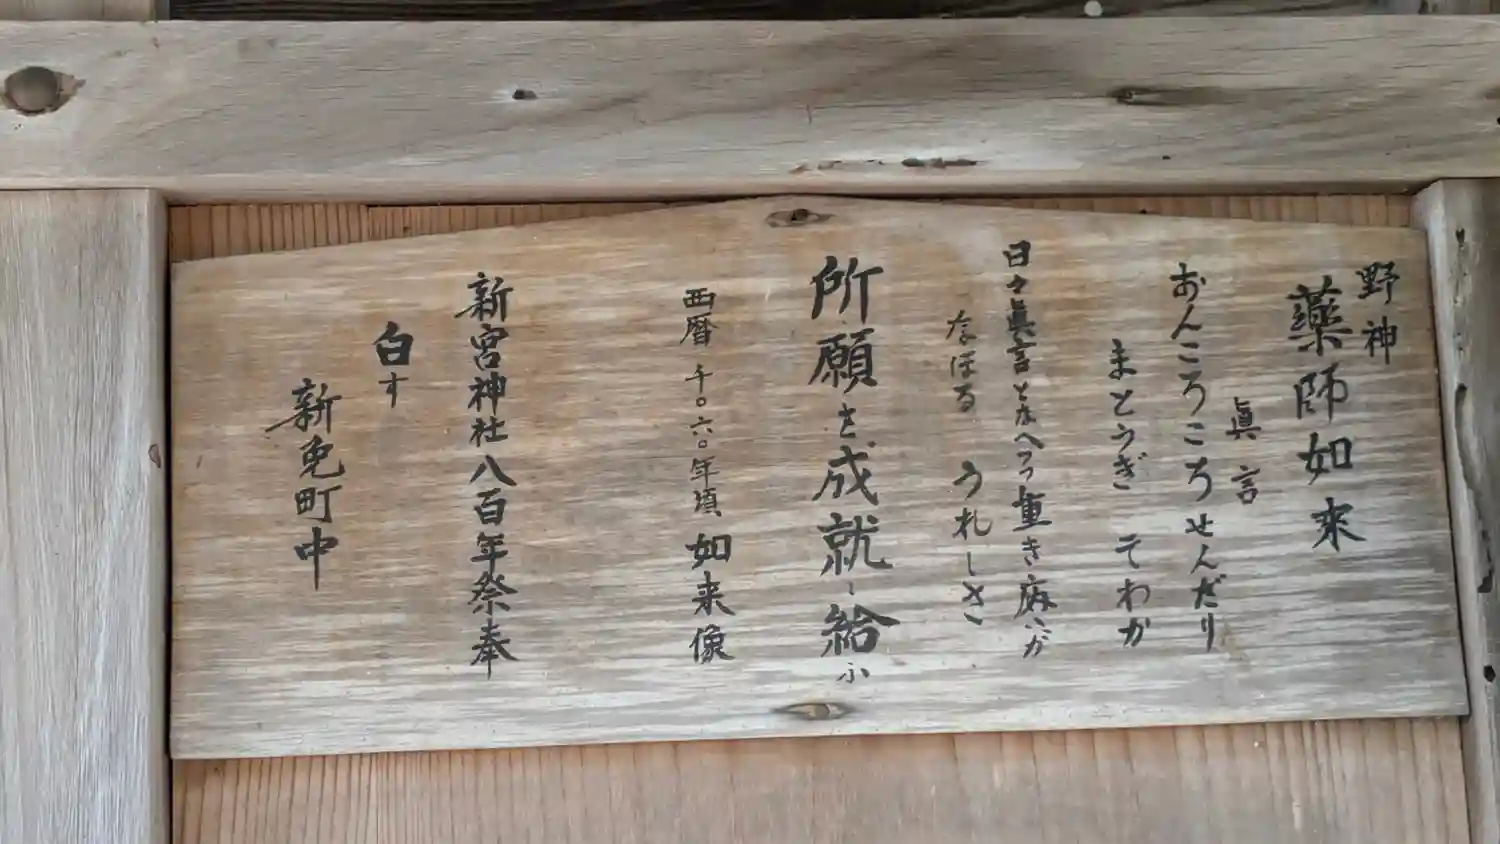 野神
藥師如來
眞言
おんころころせんだり
まとうぎ そわか
日々眞言となへつつ重き病が
なほる うれしさ
所願を成就し給ふ
西暦千〇六〇年頃 如来像
新宮神社八百年祭奉
白す
新免町中